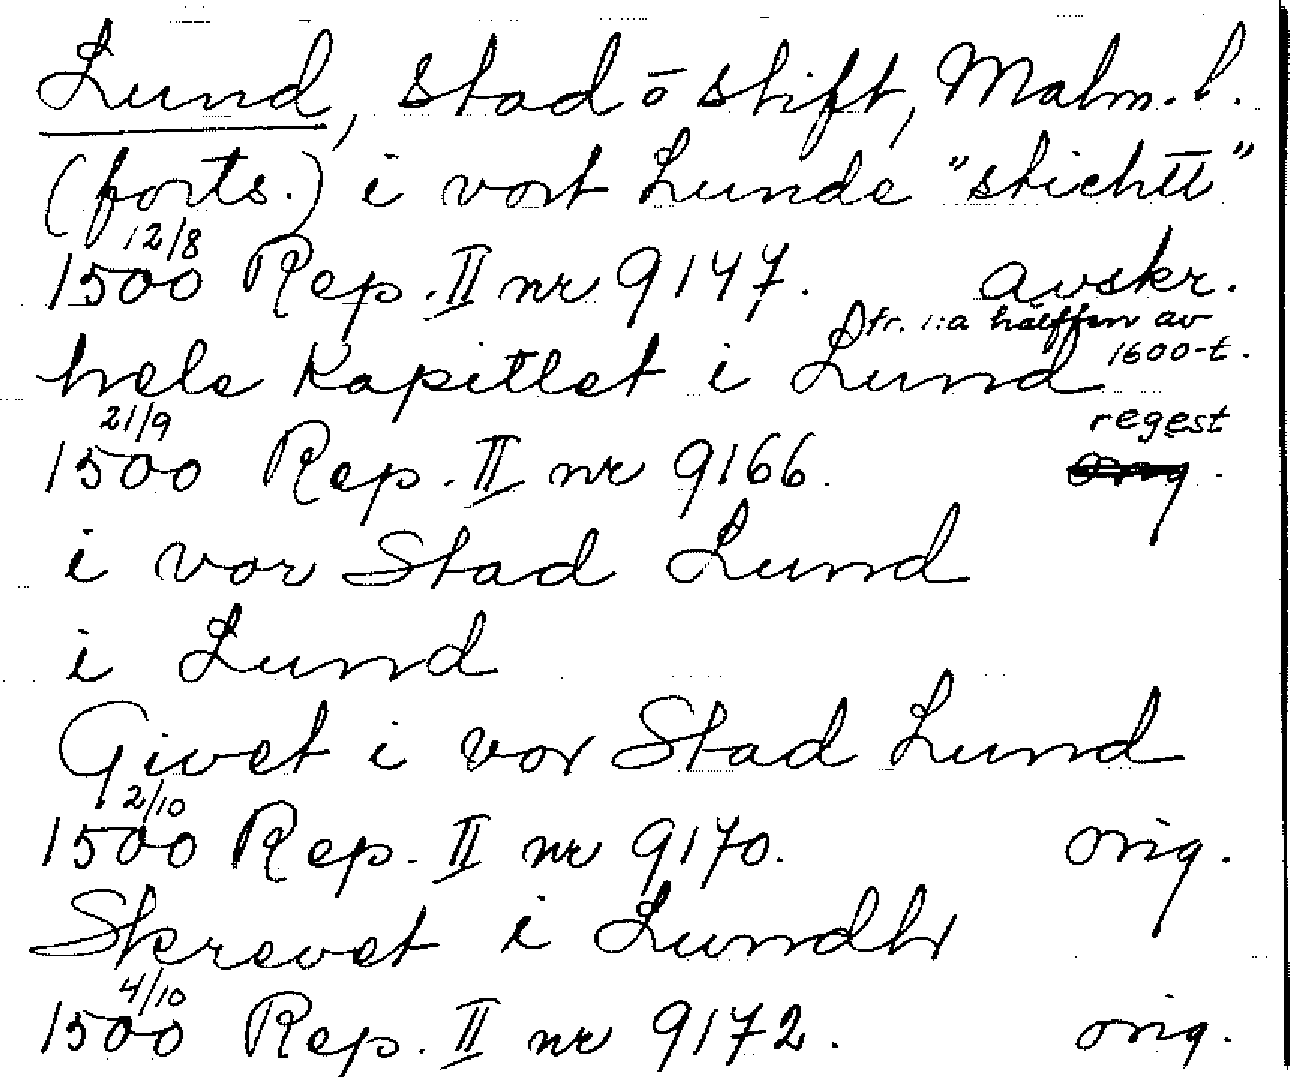 Lund, stad o stift, Malm. l.
(forts.) i vort Lunde "stichtt"
12/8
1500 Rep. II nr 9147. avskr.
fr. 1:a hälften av
1600-t.
hele Kapitlet i Lund
21/9
regest
1500 Rep. II nr 9166. orig.
i vor Stad Lund
i Lund
Givet i vor Stad Lund
2/10
1500 Rep. II nr 9170. orig.
Skrevet i Lundh
4/10
1500 Rep. II nr 9172. orig.